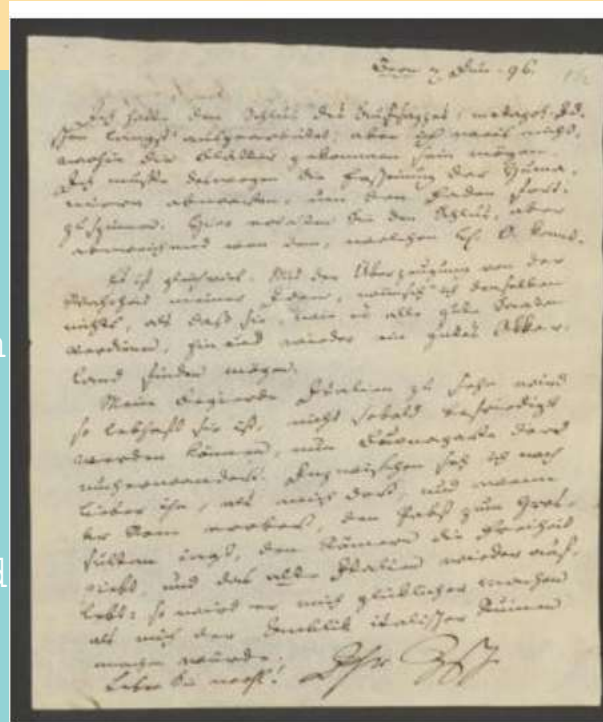 Bern 7 Jun. 96.
Ich hatte den Schluß des Aufsatzes: metapol. Id
een längst ausgearbeitet; aber ich weis nicht,
wohin die Blätter gekommen sein mögen.
Ich mußte deswegen die der
abwarten, um den Faden fort
zuspinnen. Hier erhalten Sie den Schluß, aber
von dem, welchen
Es ist gleichviel. Mit der Überzeugung von der
Wahrheit meiner Ideen, wünsch' ich denselben
nichts, als daß sie, wie es alle gute Saaten
verdienen, hin und wieder ein gutes Akker,
land finden mögen.
Meine Begierde Italien zu sehn wird
so lebhaft sie ist, nicht sobald befriedigt
werden können, nun Buonaparte dort
umherwandert. Inzwischen seh ich noch
lieber ihn, als mich dort, und wenn
er Rom erobert, den Pabst zum Gros
sultan jagt, den Römern die Freiheit
giebt, und das alte Italien wieder auf,
lebt: so wird er mich glücklicher machen
als mich der Anblik italischer Ruinen
machen würde.
Leben Sie wohl! Ihr
n
d